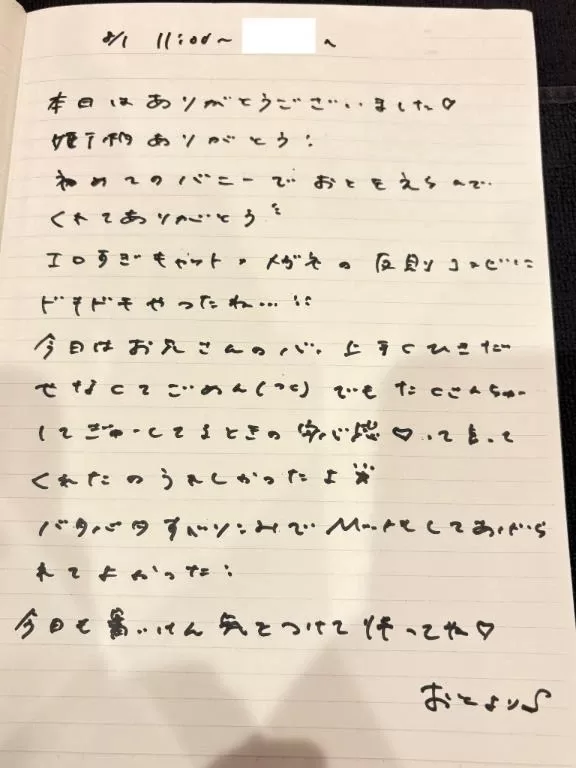 8/1 11:00~ へ
本日はありがとうございました♡
ありがとう:
初めてのバニーでおとをえらんで
くれてありがとう
エロすぎキャット×メガネの反則コンビに
ドキドキやったね…
今日はお兄さんの 上手くひきだ
せなくてごめん(つく) でもたくさんちゅー
してぎゅーしてるときの 安心感♡って言って
くれたのうれしかったよ
バタバタすべりこみで してあげら
れてよかった:
今日も暑いけん気をつけて帰ってね♡
おとより♪